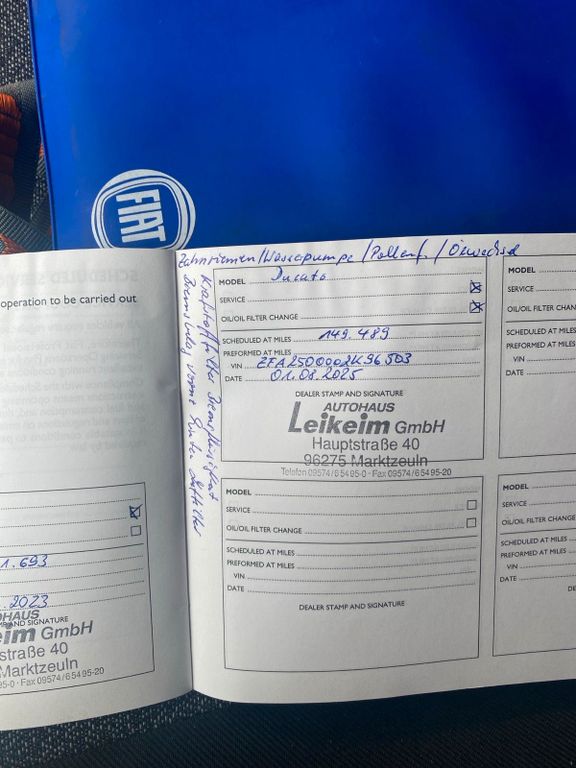 FIAT
SCHEDULED SERVICE
operation to be carried out
1.693
.2023
STAMP AND SIGNATURE
im GmbH
straße 40
Marktzeuln
95-0 · Fax 09574/65495-20
Zahnriemen/Wasserpumpe/Pollenf./Ölwechsel
Kraftstofffilter Bremsflüssigkeit
Bremsbelag vorne hinten Luftfilter
MODEL Ducato
SERVICE
OIL/OIL FILTER CHANGE
SCHEDULED AT MILES 149.489
PREFORMED AT MILES
VIN ZFA2500002K96503
DATE 01.08.2025
DEALER STAMP AND SIGNATURE
AUTOHAUS
Leikeim GmbH
Hauptstraße 40
96275 Marktzeuln
Telefon 09574/65495-0 · Fax 09574/65495-20
MODEL
SERVICE
OIL/OIL FILTER CHANGE
SCHEDULED AT MILES
PREFORMED AT MILES
VIN
DATE
DEALER STAMP AND SIGNATURE
MODEL
SERVICE
OIL/OIL FILTER CHANGE
SCHEDULED AT MILES
PREFORMED AT MILES
VIN
DATE
MODEL
SERVICE
OIL/OIL FILTER CHANGE
SCHEDULED AT MILES
PREFORMED AT MILES
VIN
DATE